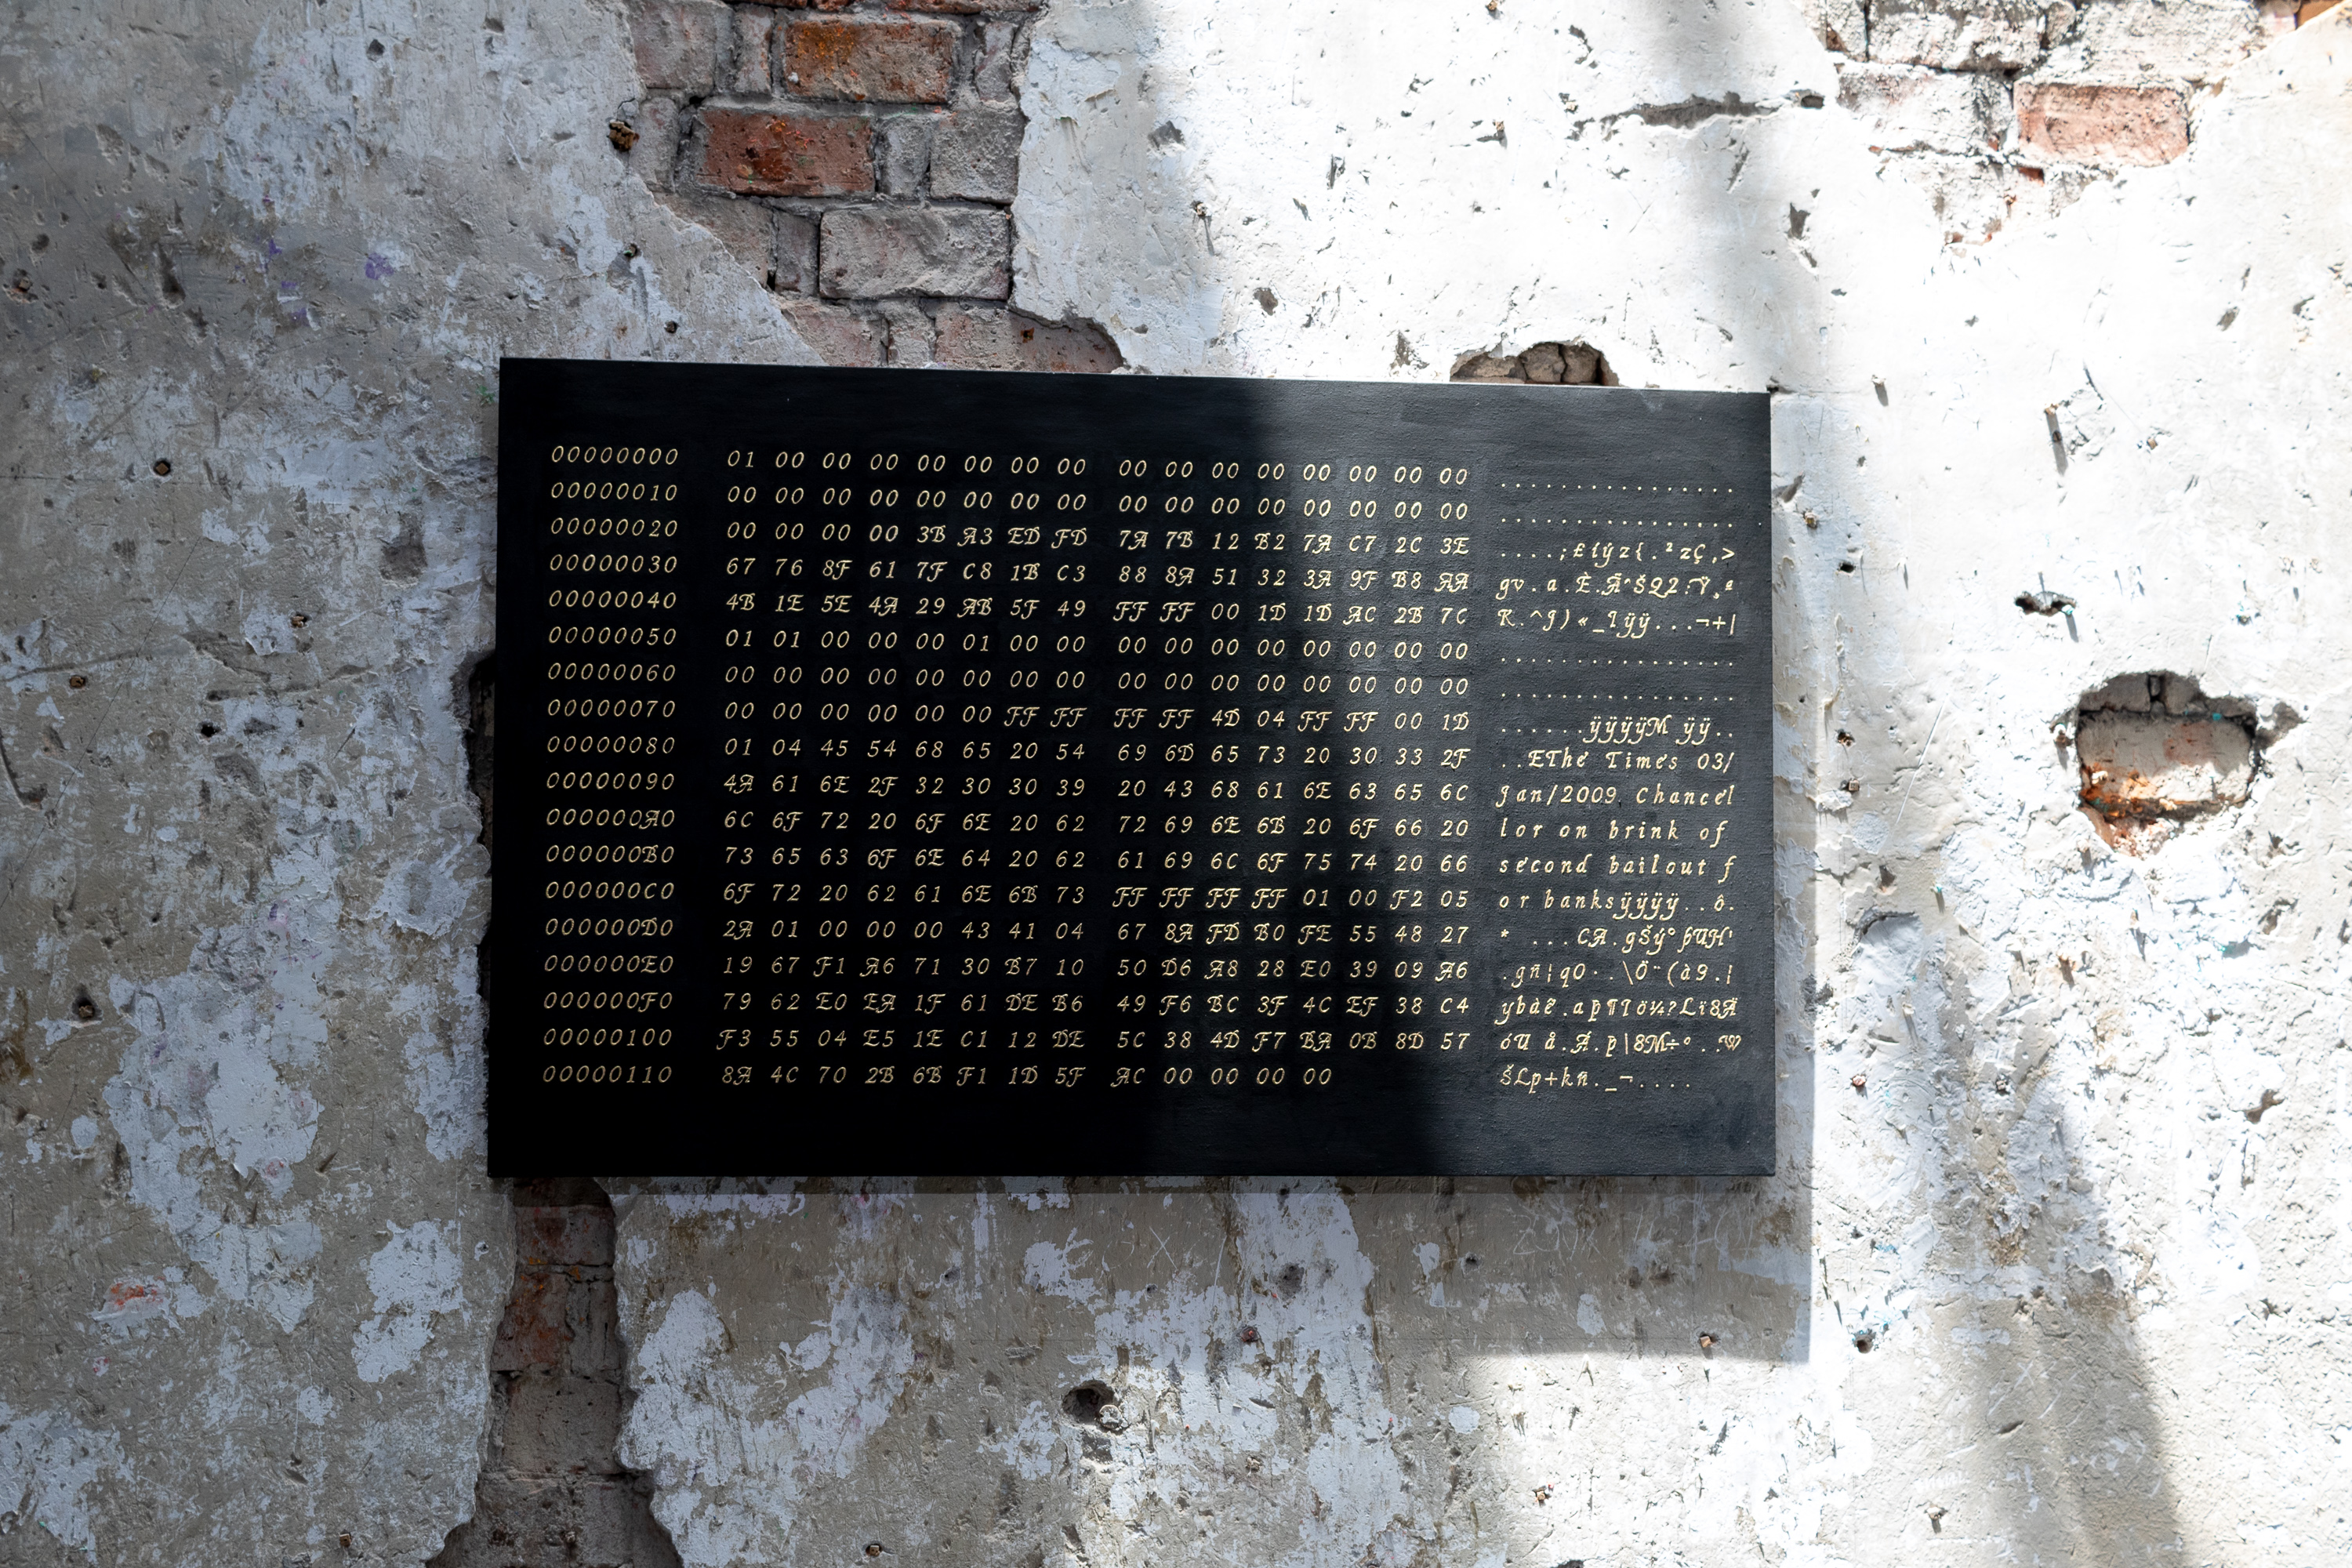 00000000 01 00 00 00 00 00 00 00 00 00 00 00 00 00 00 00 ................
00000010 00 00 00 00 00 00 00 00 00 00 00 00 00 00 00 00 ................
00000020 00 00 00 00 3B A3 ED FD 7A 7B 12 B2 7A C7 2C 3E ....;£íýz{.²zÇ,>
00000030 67 76 8F 61 7F C8 1B C3 88 8A 51 32 3A 9F B8 AA gv.a.È.ÃˆŠQ2:Ÿ¸ª
00000040 4B 1E 5E 4A 29 AB 5F 49 FF FF 00 1D 1D AC 2B 7C K.^J)«_Iÿÿ...¬+|
00000050 01 01 00 00 00 01 00 00 00 00 00 00 00 00 00 00 ................
00000060 00 00 00 00 00 00 00 00 00 00 00 00 00 00 00 00 ................
00000070 00 00 00 00 00 00 FF FF FF FF 4D 04 FF FF 00 1D ......ÿÿÿÿM ÿÿ..
00000080 01 04 45 54 68 65 20 54 69 6D 65 73 20 30 33 2F ..EThe Times 03/
00000090 4A 61 6E 2F 32 30 30 39 20 43 68 61 6E 63 65 6C Jan/2009 Chancel
000000A0 6C 6F 72 20 6F 6E 20 62 72 69 6E 6B 20 6F 66 20 lor on brink of
000000B0 73 65 63 6F 6E 64 20 62 61 69 6C 6F 75 74 20 66 second bailout f
000000C0 6F 72 20 62 61 6E 6B 73 FF FF FF FF 01 00 F2 05 or banksÿÿÿÿ..ò.
000000D0 2A 01 00 00 00 43 41 04 67 8A FD B0 FE 55 48 27 * ...CA.gŠý°þUH'
000000E0 19 67 F1 A6 71 30 B7 10 50 D6 A8 28 E0 39 09 A6 .gñ¦q0·.\Ö¨(à9.¦
000000F0 79 62 E0 EA 1F 61 DE B6 49 F6 BC 3F 4C EF 38 C4 ybàê.aÞ¶Iö¼?Lï8Ä
00000100 F3 55 04 E5 1E C1 12 DE 5C 38 4D F7 BA 0B 8D 57 óU å.Á.Þ|8M÷º..W
00000110 8A 4C 70 2B 6B F1 1D 5F AC 00 00 00 00 ŠLp+kñ._¬....